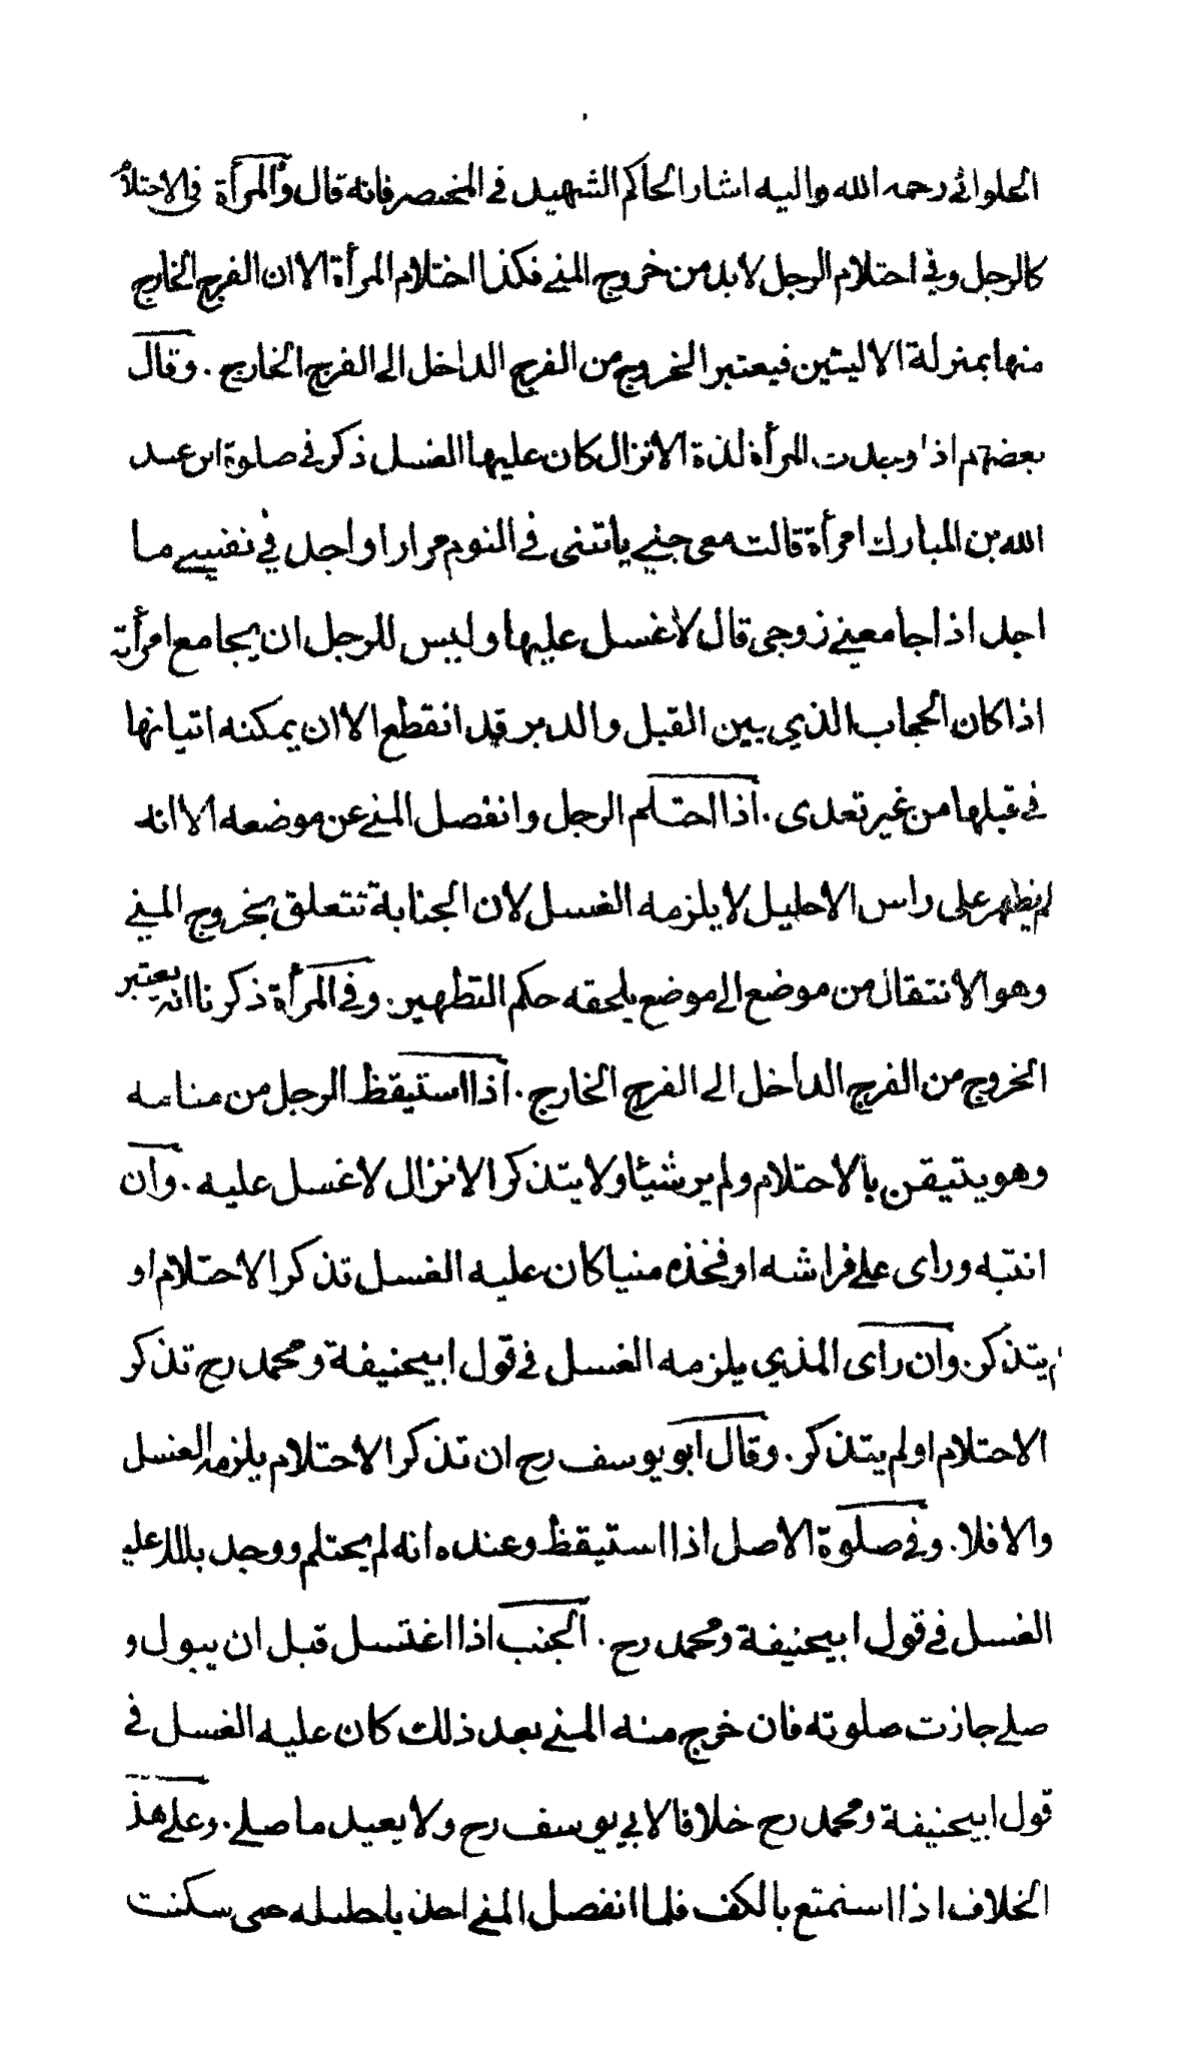 الحلوائي رحمه الله واليه اشار الحاكم الشهيد في المختصر فانه قال والمرأة في الاحتلام
كالرجل وفي احتلام الرجل لابد من خروج المني فكذا احتلام المرأة الا ان الفرج الخارج
منها بمنزلة الاليتين فيعتبر الخروج من الفرج الداخل الى الفرج الخارج . وقال
بعضهم اذا وجدت المرأة لذة الانزال كان عليها الغسل ذكر في صلوة ابن عبد
الله بن المبارك امرأة قالت معى جني ياتنى في النوم مرارا واجد في نفسي ما
اجد اذا جامعني زوجى قال لا غسل عليها وليس للرجل ان يجامع امرأته
اذا كان الحجاب الذي بين القبل والدبر قد انقطع الا ان يمكنه اتيانها
في قبلها من غير تعدى . اذا احتلم الرجل وانفصل المني عن موضعه الا انه
لم يظهر على راس الاحليل لا يلزمه الغسل لان الجنابة تتعلق بخروج المني
وهو الانتقال من موضع الى موضع يلحقه حكم التطهير . وفي المرأة ذكرنا انه يعتبر
الخروج من الفرج الداخل الى الفرج الخارج . اذا استيقظ الرجل من منامه
وهو يتيقن بالاحتلام ولم ير شيئا ولا يتذكر الانزال لا غسل عليه . وان
انتبه وراى على فراشه او فخذه منيا كان عليه الغسل تذكر الاحتلام او
لم يتذكر . وان راى المذي يلزمه الغسل في قول ابيحنيفة ومحمد رح تذكر
الاحتلام او لم يتذكر . وقال ابو يوسف رح ان تذكر الاحتلام يلزمه الغسل
والا فلا . وفي صلوة الاصل اذا استيقظ وعنده انه لم يحتلم ووجد بللا عليه
الغسل في قول ابيحنيفة ومحمد رح . الجنب اذا اغتسل قبل ان يبول و
صلى جازت صلوته فان خرج منه المني بعد ذلك كان عليه الغسل في
قول ابيحنيفة ومحمد رح خلافا لابي يوسف رح ولا يعيد ما صلى . وعلى هذا
الخلاف اذا استمتع بالكف فلما انفصل المني اخذ باحليله حتى سكنت